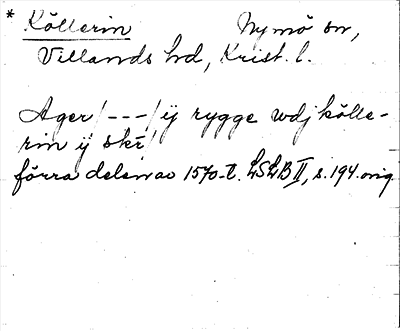 * Köllerin Nymö sn,
Villands hd, Krist. l.
Ager/---/ ij rygge wdj kölle-
rin ij skr̄
förra delen av 1570-t. LSLB II, s. 194. orig